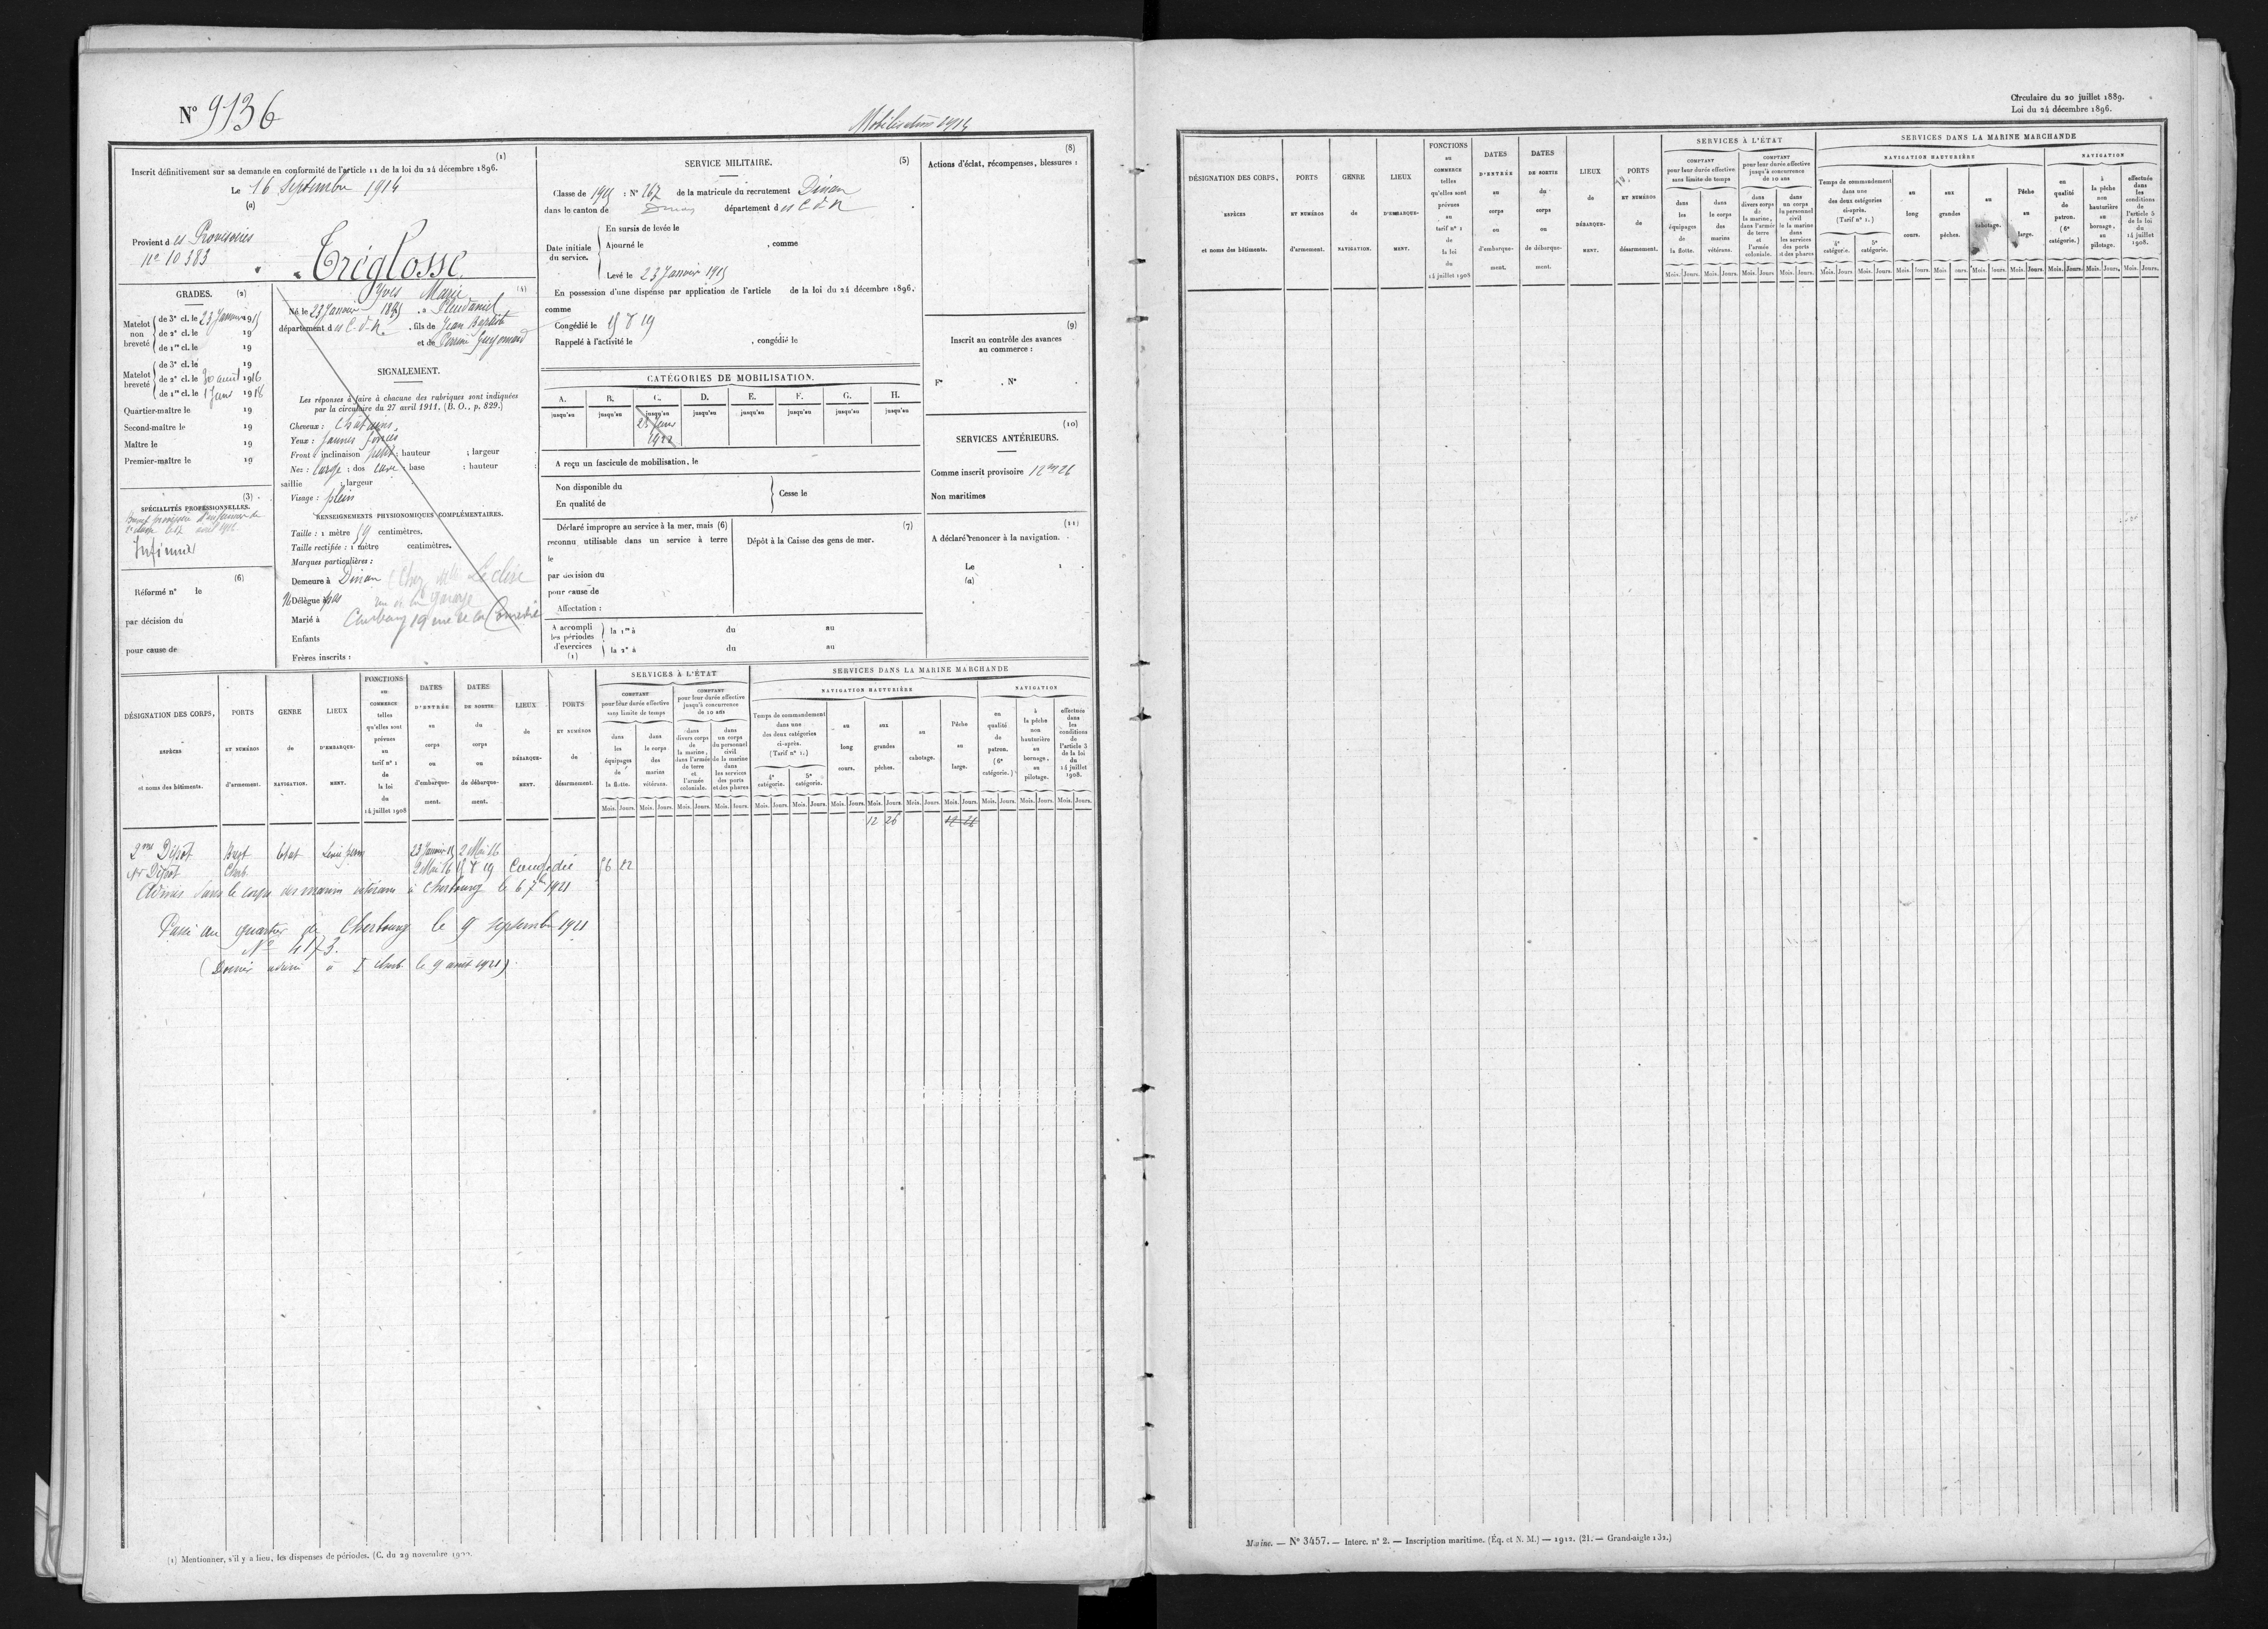 N° 9136
Mobilisation 1914
(1)
Inscrit définitivement sur sa demande en conformité de l'article 11 de la loi du 24 décembre 1896.
Le 16 Septembre 1914
(a)
Provient des Provisoires
n° 10383
Tréglosse
Yves Marie
GRADES. (2)
Matelot non breveté
de 3e cl. le 23 Janvier 1915
de 2e cl. le 19
de 1re cl. le 19
Matelot breveté
de 3e cl. le 19
de 2e cl. le 30 août 1916
de 1re cl. le 1 Janv 1918
Quartier-maître le 19
Second-maître le 19
Maître le 19
Premier-maître le 19
(3)
SPÉCIALITÉS PROFESSIONNELLES.
Infirmier
(6)
Réformé n° le
par décision du
pour cause de
(4)
Né le 23 Janvier 1895 à Pleudaniel
département des C-d-N, fils de Jean Baptiste
et de Guyomard
SIGNALEMENT.
Les réponses à faire à chacune des rubriques sont indiquées
par la circulaire du 27 avril 1911. (B. O., p. 829.)
Cheveux : Châtains
Yeux : jaunes foncés
Front : inclinaison petit ; hauteur ; largeur
Nez : large ; dos cave ; base ; hauteur ;
saillie ; largeur
Visage : plein
RENSEIGNEMENTS PHYSIONOMIQUES COMPLÉMENTAIRES.
Taille : 1 mètre 59 centimètres.
Taille rectifiée : 1 mètre centimètres.
Marques particulières :
Demeure à Dinan (Chez
Délégue
rue de la Garaye
Marié à
Cherbourg 19 rue de la Comédie
Enfants
Frères inscrits :
SERVICE MILITAIRE. (5)
Classe de 1915 : N° 167 de la matricule du recrutement Dinan
dans le canton de Dinan département des C d N
Date initiale du service.
En sursis de levée le
Ajourné le , comme
Levé le 23 Janvier 1915
En possession d'une dispense par application de l'article de la loi du 24 décembre 1896.
comme
Congédié le
Rappelé à l'activité le , congédié le
CATÉGORIES DE MOBILISATION.
A. B. C. D. E. F. G. H.
jusqu'en jusqu'en jusqu'en jusqu'en jusqu'en jusqu'en jusqu'en jusqu'en
1922
A reçu un fascicule de mobilisation, le
Non disponible du
En qualité de
Cesse le
Déclaré impropre au service à la mer, mais (6)
reconnu utilisable dans un service à terre
le
par décision du
pour cause de
Affectation :
(7)
Dépôt à la Caisse des gens de mer.
A accompli les périodes d'exercices (1)
la 1re à du au
la 2e à du au
(8)
Actions d'éclat, récompenses, blessures :
(9)
Inscrit au contrôle des avances
au commerce :
F° . N° .
(10)
SERVICES ANTÉRIEURS.
Comme inscrit provisoire 12 m 26
Non maritimes
(11)
A déclaré renoncer à la navigation.
Le
(a)
DÉSIGNATION DES CORPS, ESPÈCES et noms des bâtiments.
PORTS ET NUMÉROS d'armement.
GENRE de NAVIGATION.
LIEUX D'EMBARQUEMENT.
FONCTIONS au COMMERCE telles qu'elles sont prévues au tarif n° 1 de la loi du 14 juillet 1908
DATES D'ENTRÉE au corps ou d'embarquement.
DATES DE SORTIE du corps ou de débarquement.
LIEUX de DÉBARQUEMENT.
PORTS ET NUMÉROS de désarmement.
SERVICES À L'ÉTAT
COMPTANT pour leur durée effective sans limite de temps
dans les équipages de la flotte.
dans le corps des marins vétérans.
COMPTANT pour leur durée effective jusqu'à concurrence de 10 ans
dans divers corps de la marine, dans l'armée de terre et l'armée coloniale.
dans un corps du personnel civil de la marine dans les services des ports et des phares
SERVICES DANS LA MARINE MARCHANDE
NAVIGATION HAUTURIÈRE
Temps de commandement dans une des deux catégories ci-après. (Tarif n° 1.)
4e catégorie. 5e catégorie.
au long cours.
aux grandes pêches.
au cabotage.
Pêche au large.
NAVIGATION
en qualité de patron. (6e catégorie.)
à la pêche non hauturière au bornage, au pilotage.
effectuée dans les conditions de l'article 5 de la loi du 14 juillet 1908.
Mois. Jours.
12 26
2me Dépôt Brest Etat Levée perm 23 Janvier 15 2 Mai 16
1er Dépôt Cherb. 2 Mai 16 Congédié
Admis dans le corps des marins vétérans à Cherbourg le 6 7bre 1921
Passé au quartier de Cherbourg le 9 septembre 1921
N° 4173.
à I Cherb. le 9 août 1921)
(1) Mentionner, s'il y a lieu, les dispenses de périodes. (C. du 29 novembre
Circulaire du 20 juillet 1889.
Loi du 24 décembre 1896.
DÉSIGNATION DES CORPS, ESPÈCES et noms des bâtiments.
PORTS ET NUMÉROS d'armement.
GENRE de NAVIGATION.
LIEUX D'EMBARQUEMENT.
FONCTIONS au COMMERCE telles qu'elles sont prévues au tarif n° 1 de la loi du 14 juillet 1908
DATES D'ENTRÉE au corps ou d'embarquement.
DATES DE SORTIE du corps ou de débarquement.
LIEUX de DÉBARQUEMENT.
PORTS ET NUMÉROS de désarmement.
SERVICES À L'ÉTAT
COMPTANT pour leur durée effective sans limite de temps
dans les équipages de la flotte.
dans le corps des marins vétérans.
COMPTANT pour leur durée effective jusqu'à concurrence de 10 ans
dans divers corps de la marine, dans l'armée de terre et l'armée coloniale.
dans un corps du personnel civil de la marine dans les services des ports et des phares
SERVICES DANS LA MARINE MARCHANDE
NAVIGATION HAUTURIÈRE
Temps de commandement dans une des deux catégories ci-après. (Tarif n° 1.)
4e catégorie. 5e catégorie.
au long cours.
aux grandes pêches.
au cabotage.
Pêche au large.
NAVIGATION
en qualité de patron. (6e catégorie.)
à la pêche non hauturière au bornage, au pilotage.
effectuée dans les conditions de l'article 5 de la loi du 14 juillet 1908.
Mois. Jours.
Marine. — N° 3457. — Interc. n° 2. — Inscription maritime. (Éq. et N. M.) — 1912. (21. — Grand-aigle 132.)